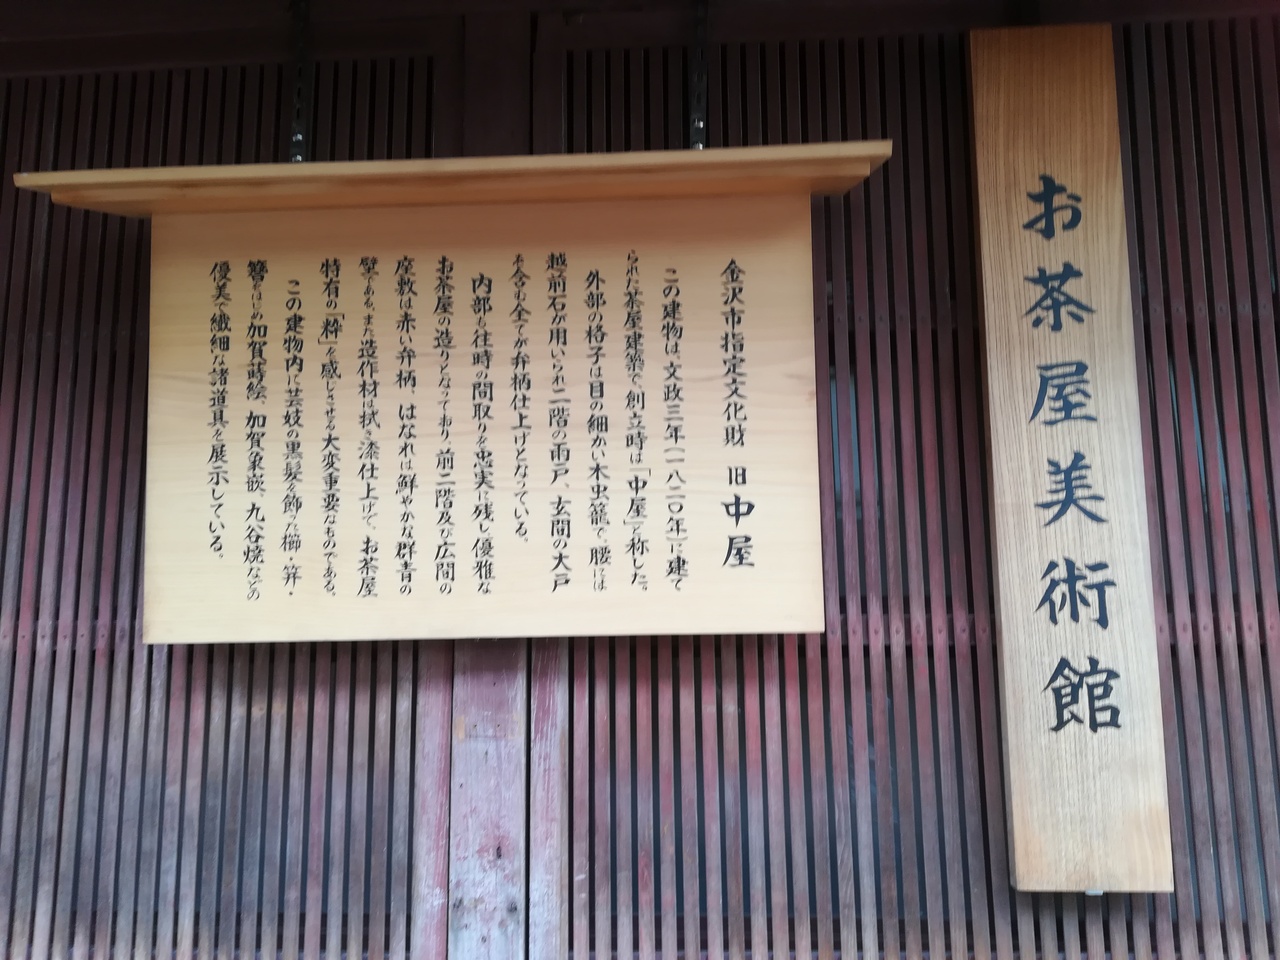 お茶屋美術館
金沢市指定文化財 旧中屋
この建物は、文政三年(一八二〇年)に建て
られた茶屋建築で、創立時は「中屋」と称した。
外部の格子は目の細かい木虫籠で、腰には
越前石が用いられ二階の雨戸、玄関の大戸
を含む全てが弁柄仕上げとなっている。
内部も往時の間取りを忠実に残し、優雅な
お茶屋の造りとなっており、前二階及び広間の
座敷は赤い弁柄、はなれは鮮やかな群青の
壁である。また造作材は拭き漆仕上げで、お茶屋
特有の「粋」を感じさせる大変重要なものである。
この建物内に芸妓の黒髪を飾った櫛・笄・
簪をはじめ加賀蒔絵、加賀象嵌、九谷焼などの
優美で繊細な諸道具を展示している。